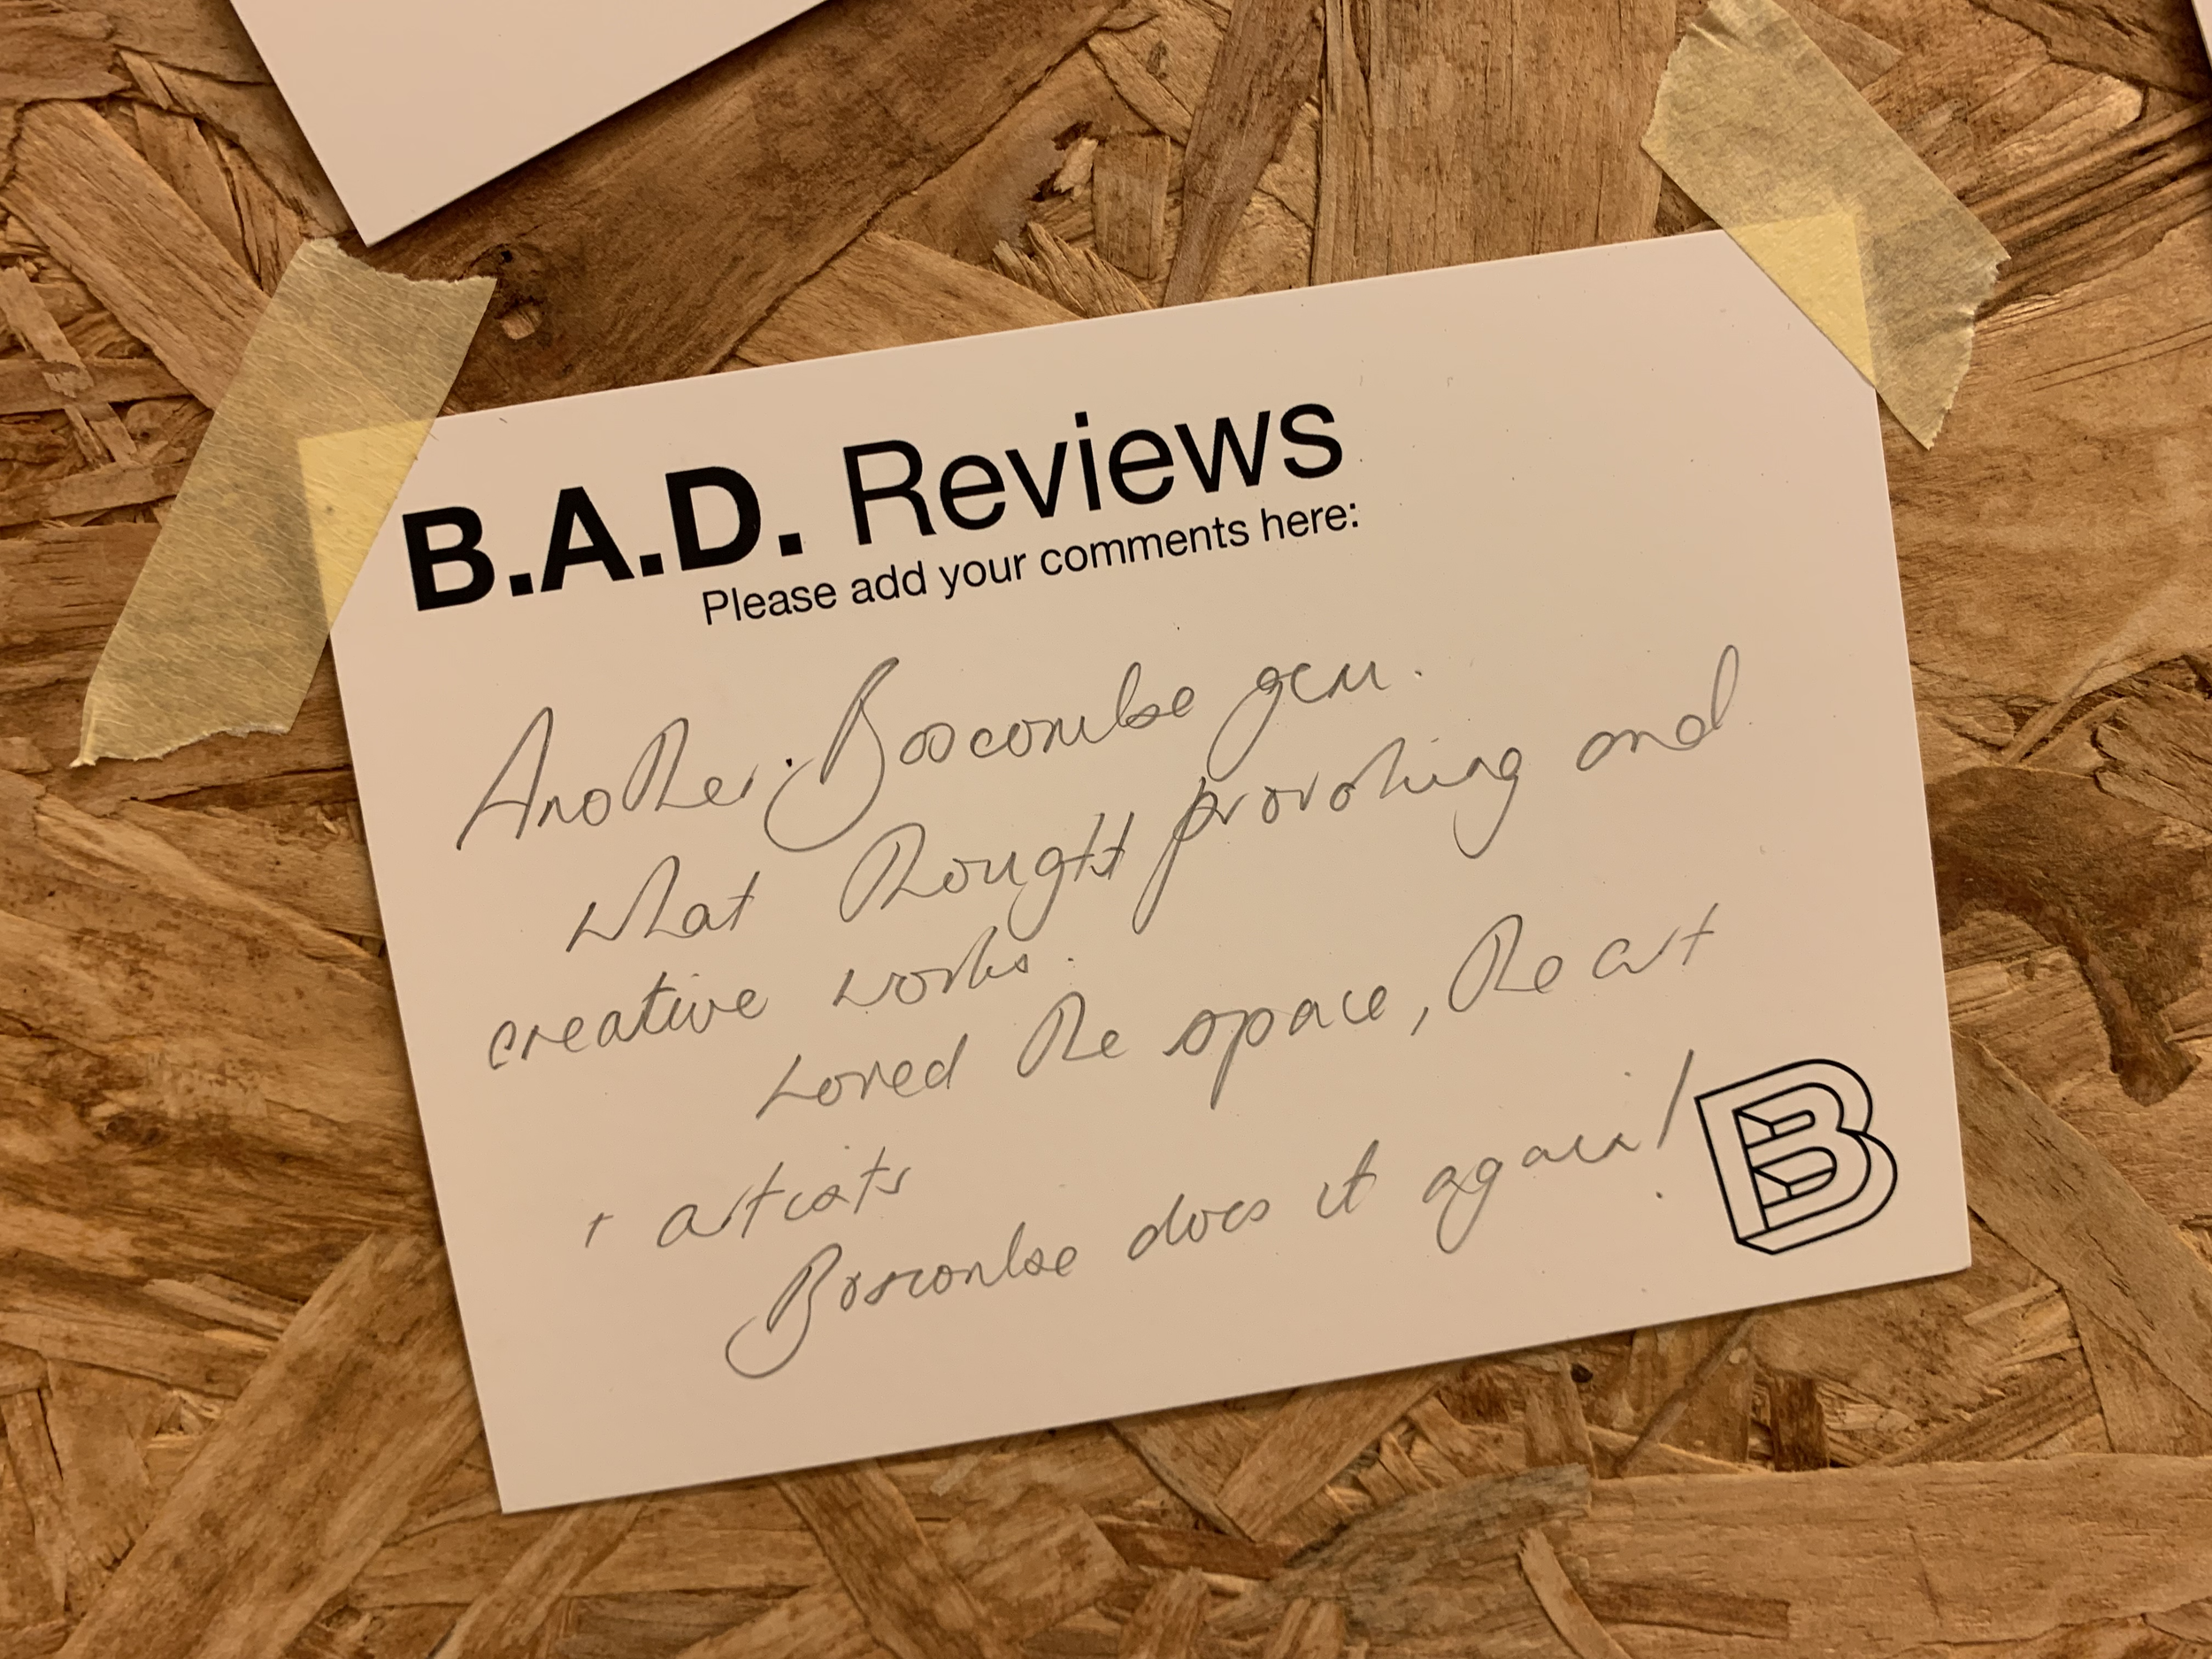 B.A.D. Reviews
Please add your comments here:
Another Boscombe gem.
What thought provoking and
creative works.
Loved the space, the art
+ artists
Boscombe does it again!
B